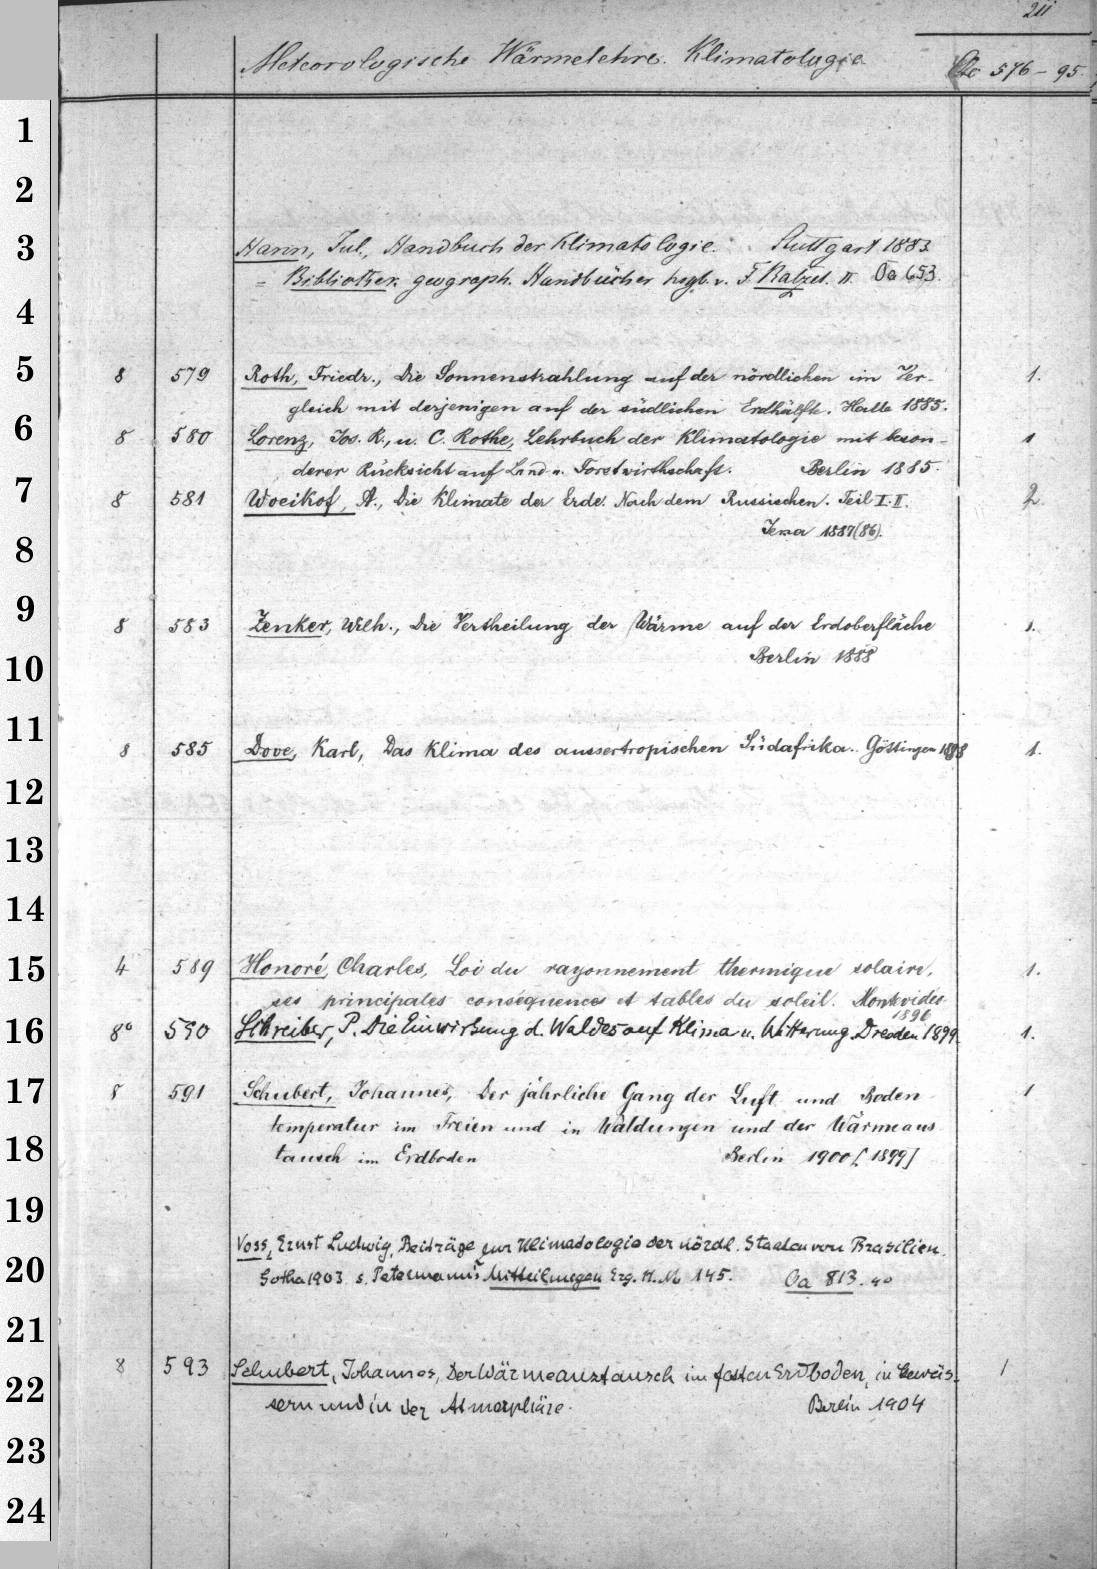 211
Meteorologische Wärmelehre. Klimatologie
576-95.
1
2
3 Hann, Jul., Handbuch der Klimatologie. Stuttgart 1883
= Bibliothek geograph. Handbücher hrgb. v. F. Ratzel. II. Oa 653.
4
5 8 579 Roth, Friedr., Die Sonnenstrahlung auf der nördlichen im Ver- 1.
gleich mit derjenigen auf der südlichen Erdhälfte. Halle 1885.
6 8 580 Lorenz, Jos. R., u. C. Rothe, Lehrbuch der Klimatologie mit beson- 1
derer Rücksicht auf Land u. Forstwirthschaft. Berlin 1885.
7 8 581 Woeikof, A., Die Klimate der Erde. Nach dem Russischen. Teil I.II. 2.
Jena 1887(86).
8
9 8 583 Zenker, Wilh., Die Vertheilung der Wärme auf der Erdoberfläche 1.
10 Berlin 1888
11 8 585 Dove, Karl, Das Klima des aussertropischen Südafrika. Göttingen 1888 1.
12
13
14
15 4 589 Honoré, Charles, Loi du rayonnement thermique solaire, 1.
ses principales conséquences et tables du soleil. Montvidéo
1896
16 8° 590 Schreiber, P. Die Einwirkung d. Waldes auf Klima u. Witterung. Dresden 1899. 1.
17 8 591 Schubert, Johannes, Der jährliche Gang der Luft und Boden 1
temperatur im Freien und in Waldungen und der Wärmeaus
18 tausch im Erdboden Berlin 1900 [1899]
19
Voss, Ernst Ludwig, Beiträge zur Klimatologie der nördl. Staaten von Brasilien.
20 Gotha 1903 s. Petermann's Mitteilungen Erg. H. No 145. Oa 813. 4o
21
8 593 Schubert, Johannes, Der Wärmeaustausch im festen Erdboden, in Gewäs- 1
22 sern und in der Atmosphäre. Berlin 1904
23
24